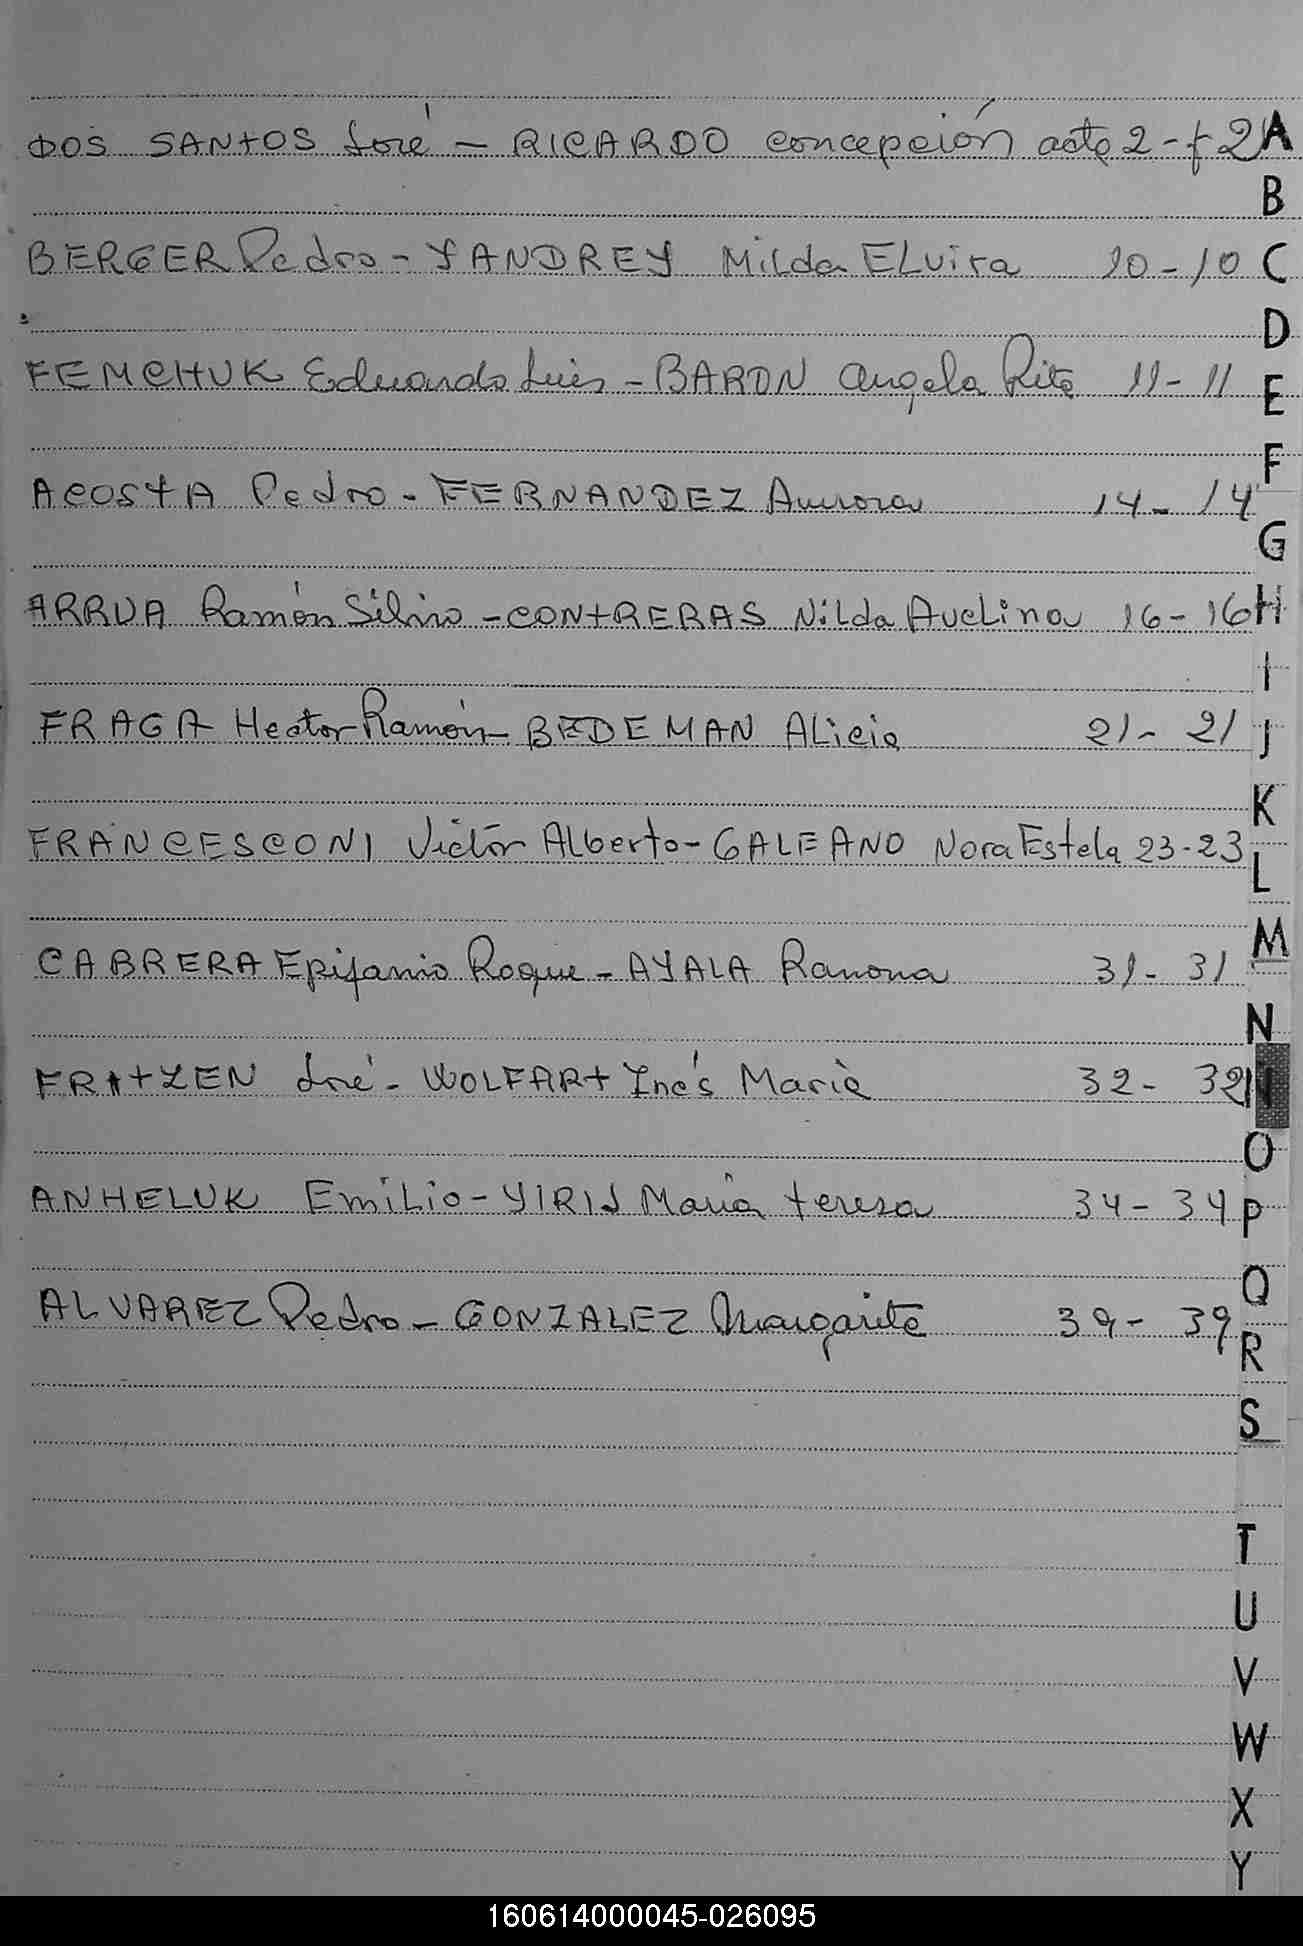 DOS SANTOS José - RICARDO concepción acta 2 - f 2
BERGER Pedro - YANDREY Milda ELvira 10 - 10
FEMCHUK Eduardo Luis - BARON Angela Rita 11 - 11
ACOSTA Pedro - FERNANDEZ Aurora 14 - 14
ARRUA Ramón Silvio - CONTRERAS Nilda Avelina 16 - 16
FRAGA Hector Ramón - BEDEMAN ALicia 21 - 21
FRANCESCONI Victor Alberto - GALEANO Nora Estela 23 - 23
CABRERA Epifanio Roque - AYALA Ramona 31 - 31
José - WOLFART Inés María 32 - 32
ANHELUK EmiLio - María teresa 34 - 34
ALVAREZ Pedro - GONZALEZ Margarita 39 - 39
A
B
C
D
E
F
G
H
I
J
K
L
M
N
O
P
Q
R
S
T
U
V
W
X
Y
160614000045-026095